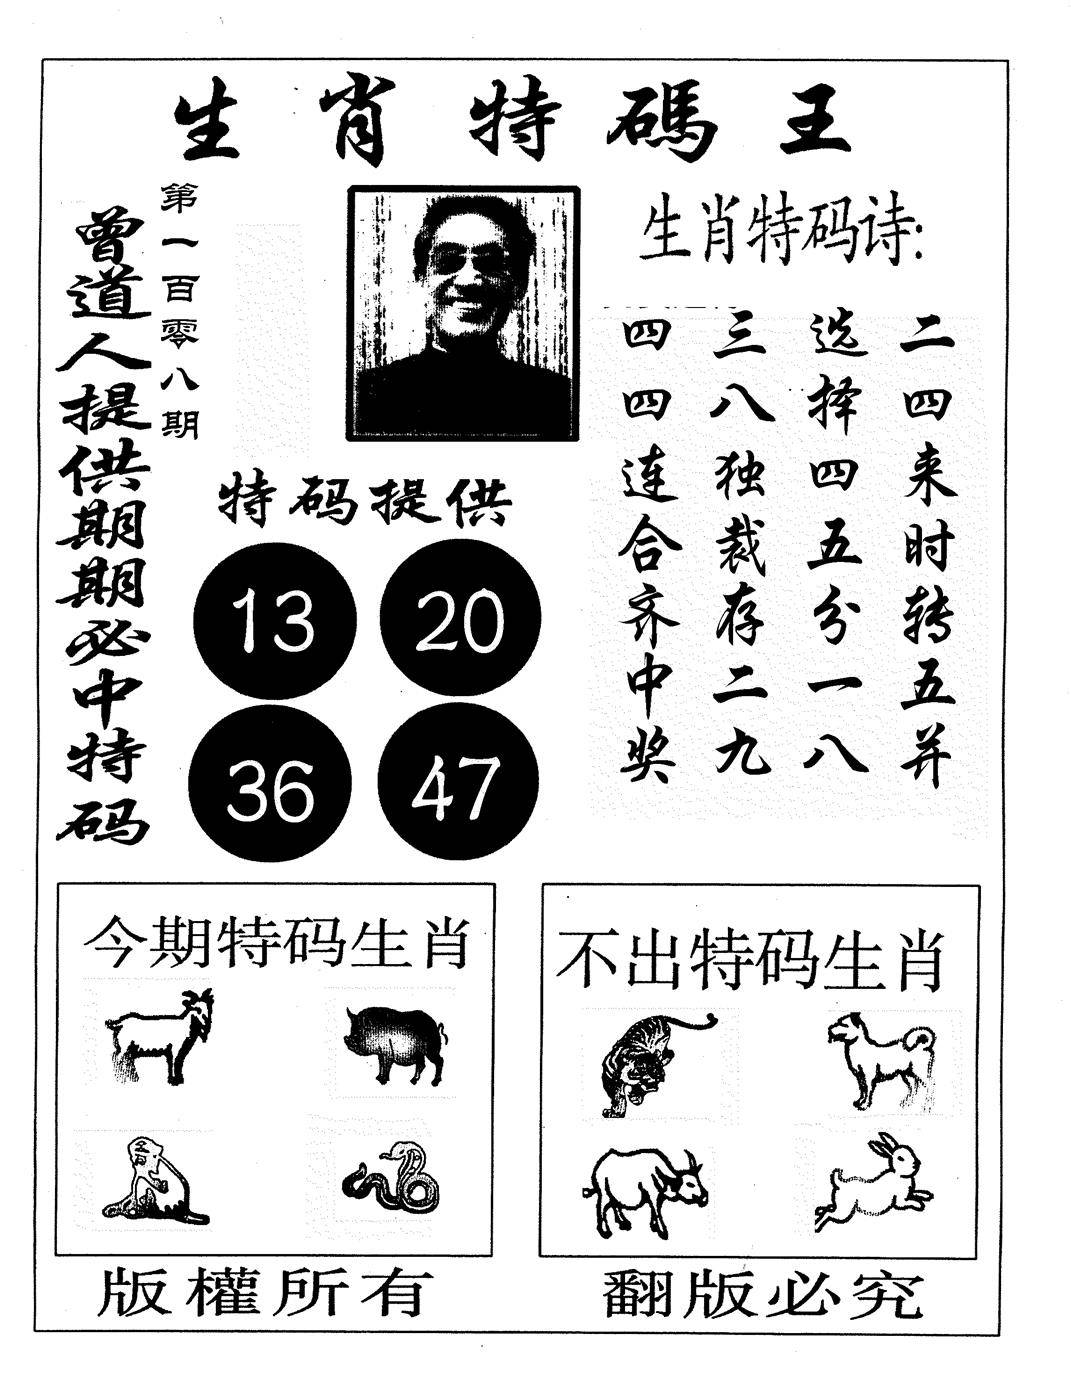 生肖特碼王
第一百零八期
曾道人提供期期必中特码
生肖特码诗:
二四来时转五并
选择四五分一八
三八独裁存二九
四四连合齐中奖
特码提供
13
20
36
47
今期特码生肖
不出特码生肖
版權所有
翻版必究